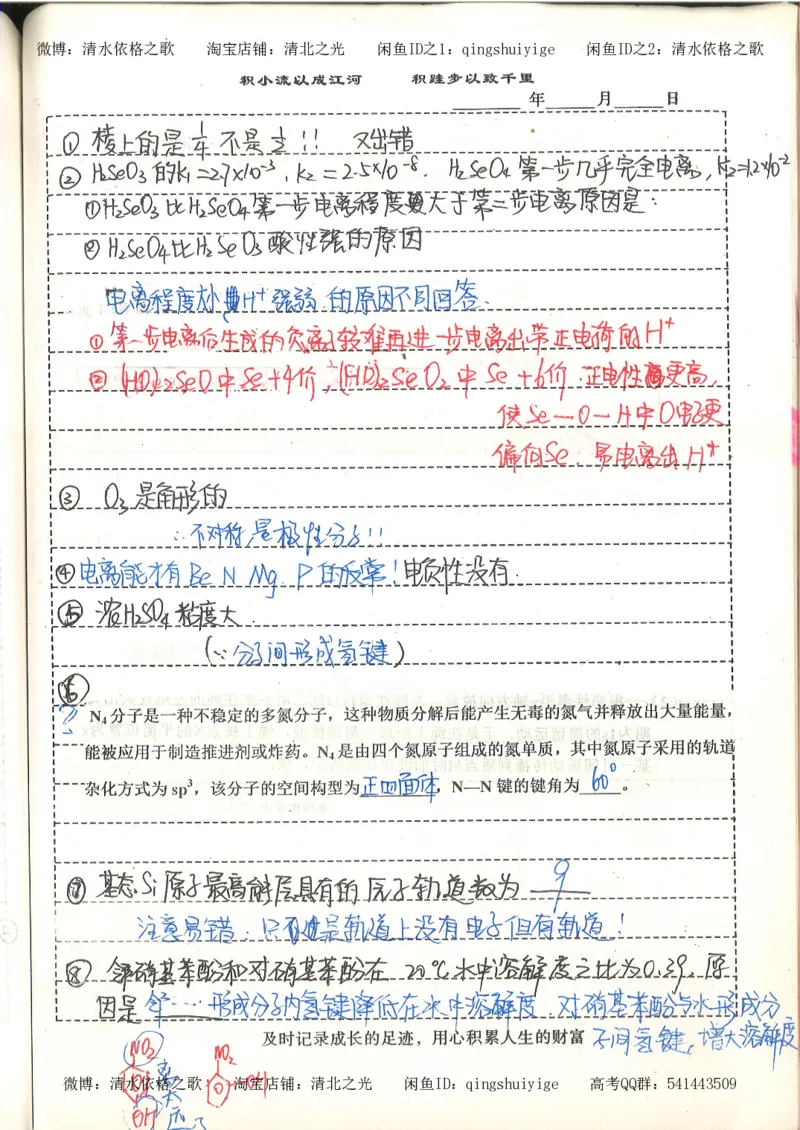 微博：清水依格之歌 淘宝店铺：清北之光 闲鱼ID之1：qingshuiyige 闲鱼ID之2：清水依格之歌
积小流以成江河 积跬步以致千里
年 月 日
① 棱上的是1/4 不是1/2!! 又出错
② H₂SeO₃的K₁=2.7×10⁻³，K₂=2.5×10⁻⁸. H₂SeO₄第一步几乎完全电离，K₂=1.2×10⁻²
①H₂SeO₃比H₂SeO₄第一步电离程度更大于第二步电离原因是：
②H₂SeO₄比H₂SeO₃酸性强的原因
电离程度 H⁺强弱的原因不同回答.
① 第一步电离后生成的负离子较难再进一步电离出带正电荷的H⁺
② (HO)₂SeO中Se+4价，(HO)₂SeO₂中Se+6价 正电性更高，
使Se—O—H中O电子更
偏向Se，易电离出H⁺
③ O₃是角形的
∴不对称 是极性分子!!
④电离能才有Be N Mg P的反常！电负性没有.
⑤ 浓H₂SO₄粘度大.
(∵分子间形成氢键)
⑥
? N₄分子是一种不稳定的多氮分子，这种物质分解后能产生无毒的氮气并释放出大量能量，
能被应用于制造推进剂或炸药。N₄是由四个氮原子组成的氮单质，其中氮原子采用的轨道
杂化方式为sp³，该分子的空间构型为正四面体，N—N键的键角为60°。
⑦ 基态Si原子最高能层具有的原子轨道数为 9
注意易错：只是轨道上没有电子但有轨道！
⑧ 邻硝基苯酚和对硝基苯酚在20℃水中溶解度之比为0.39，原
因是邻……形成分子内氢键降低在水中溶解度 对硝基苯酚与水形成分
及时记录成长的足迹，用心积累人生的财富 子间氢键，增大溶解度
NO₂ NO₂
OH OH
微博：清水依格之歌 淘宝店铺：清北之光 闲鱼ID：qingshuiyige 高考QQ群：541443509